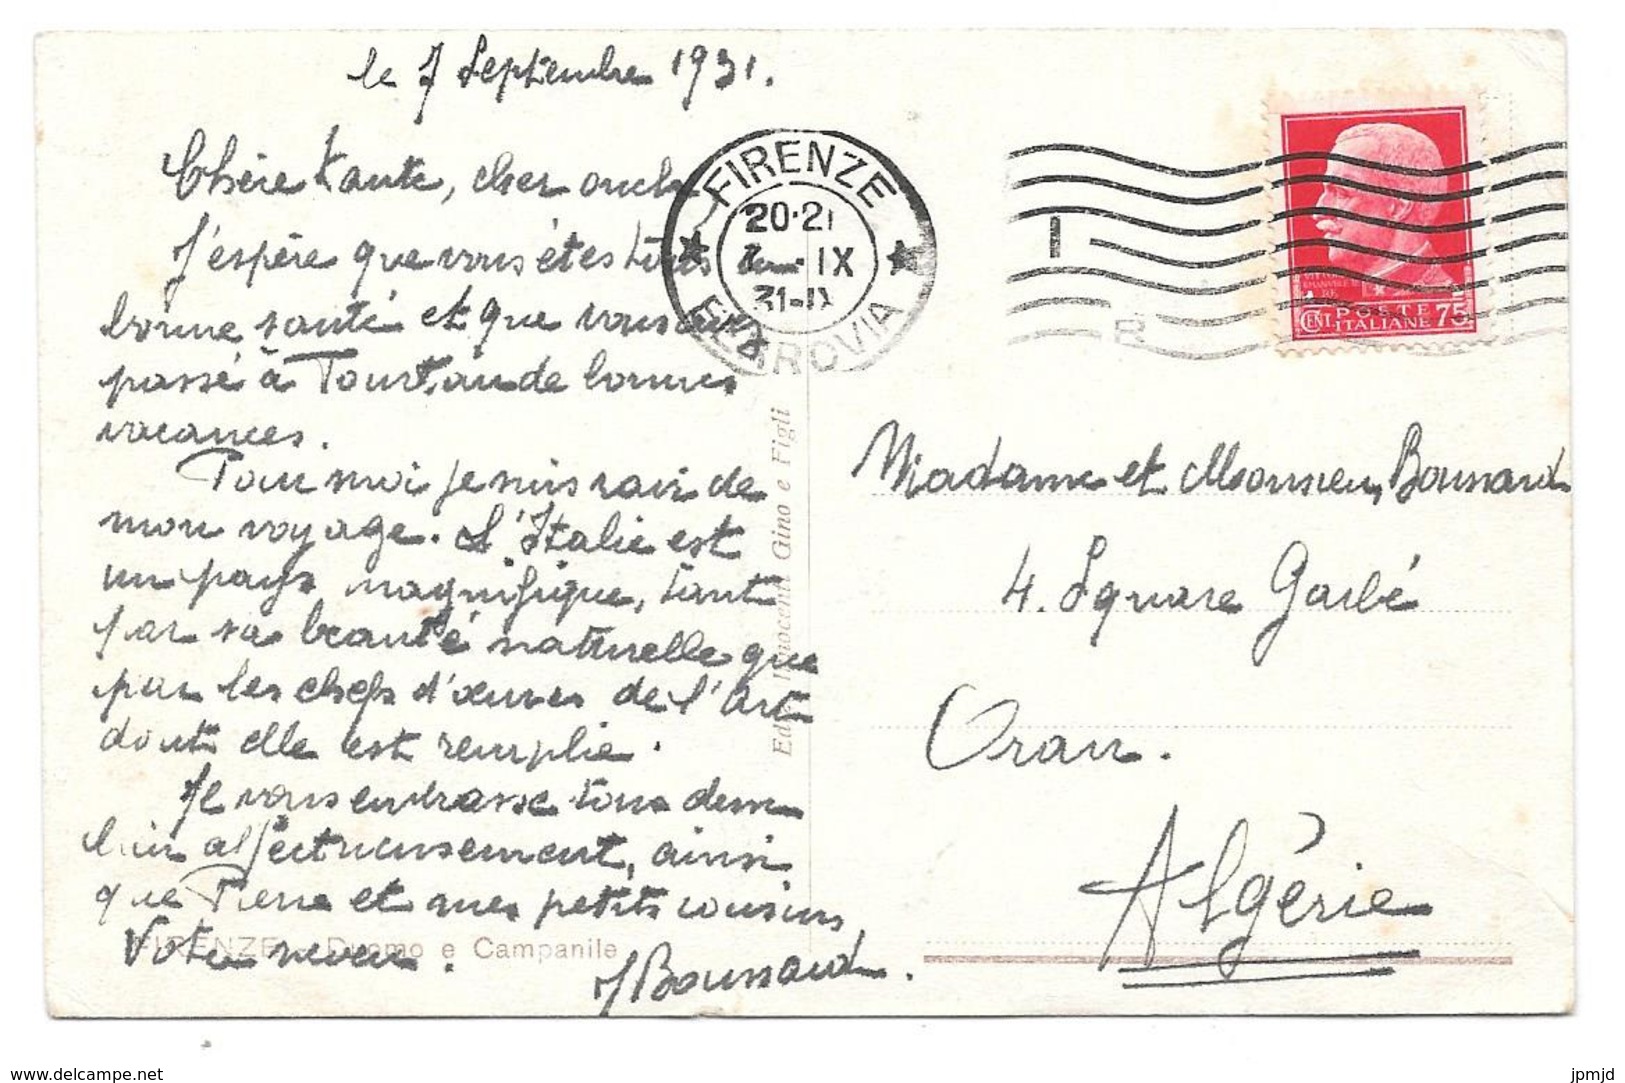 le 7 Septembre 1931.
Chère tante, cher oncle
J'espère que vous êtes tous en
bonne santé et que vous avez
passé à de bonnes
vacances.
Pour moi je suis ravi de
mon voyage. L'Italie est
un pays magnifique, tant
par sa beauté naturelle que
par les chefs d'œuvres de l'Art
dont elle est remplie.
Je vous embrasse tous deux
bien affectueusement, ainsi
que Pierre et mes petits cousins
Votre neveu.
J Boussard.
FIRENZE - Duomo e Campanile
Ed. Innocenti Gino e Figli
FIRENZE
20·21
7 IX
31-IX
FERROVIA
I
R
RE
CENT. POSTE 75
ITALIANE
Madame et Monsieur Boussard
4. Square Garbé
Oran.
Algérie
www.delcampe.net
jpmjd